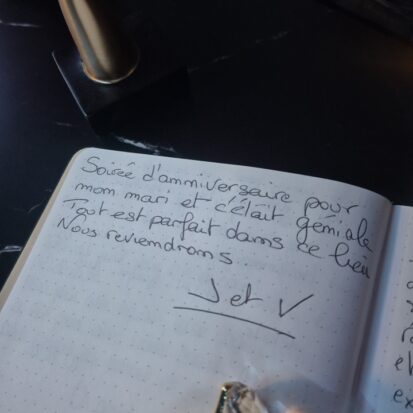 Soirée d'anniversaire pour
mon mari et c'était géniale
Tout est parfait dans ce lieu
Nous reviendrons.
J et V